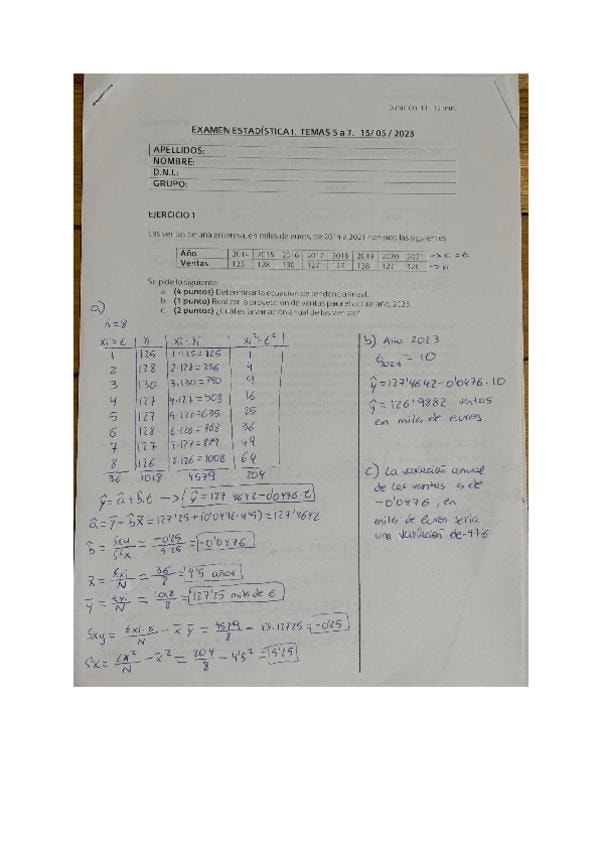 Duración 1 h. 15 min.
EXAMEN ESTADÍSTICA I. TEMAS 5 a 7. 15/ 05 / 2023
APELLIDOS:
NOMBRE:
D.N.I.:
GRUPO:
EJERCICIO 1
Las ventas de una empresa, en miles de euros, de 2014 a 2021 han sido las siguientes:
Año 2014 2015 2016 2017 2018 2019 2020 2021 -> xi = t
Ventas 125 128 130 127 127 128 127 126 -> yi
Se pide lo siguiente:
a. (4 puntos) Determinar la ecuación de tendencia lineal.
b. (1 punto) Realizar la proyección de ventas para el actual año, 2023.
c. (2 puntos) ¿Cuál es la variación anual de las ventas?
a)
N=8
xi=t yi xi·yi xi²=t²
1 125 1·125=125 1
2 128 2·128=256 4
3 130 3·130=390 9
4 127 4·127=508 16
5 127 5·127=635 25
6 128 6·128=768 36
7 127 7·127=889 49
8 126 8·126=1008 64
36 1018 4579 204
ŷ=â+b̂·t -> ŷ=127'4642-0'0476·t
â=ȳ-b̂x̄=127'25+(0'0476·4'5)=127'4642
b̂ = Sxy/S²x = -0'25/5'25 = -0'0476
x̄ = Σxi/N = 36/8 = 4'5 años
ȳ = Σyi/N = 1018/8 = 127'25 miles de €
Sxy = Σxi·yi/N - x̄ ȳ = 4579/8 - 4'5·127'25 = -0'25
S²x = Σx²/N - x̄² = 204/8 - 4'5² = 5'25
b) Año 2023
= 10
ŷ=127'4642-0'0476·10
ŷ=126'9882 ventas
en miles de euros.
c) La variación anual
de las ventas es de
-0'0476, en
miles de euros sería
una variación de -47'6